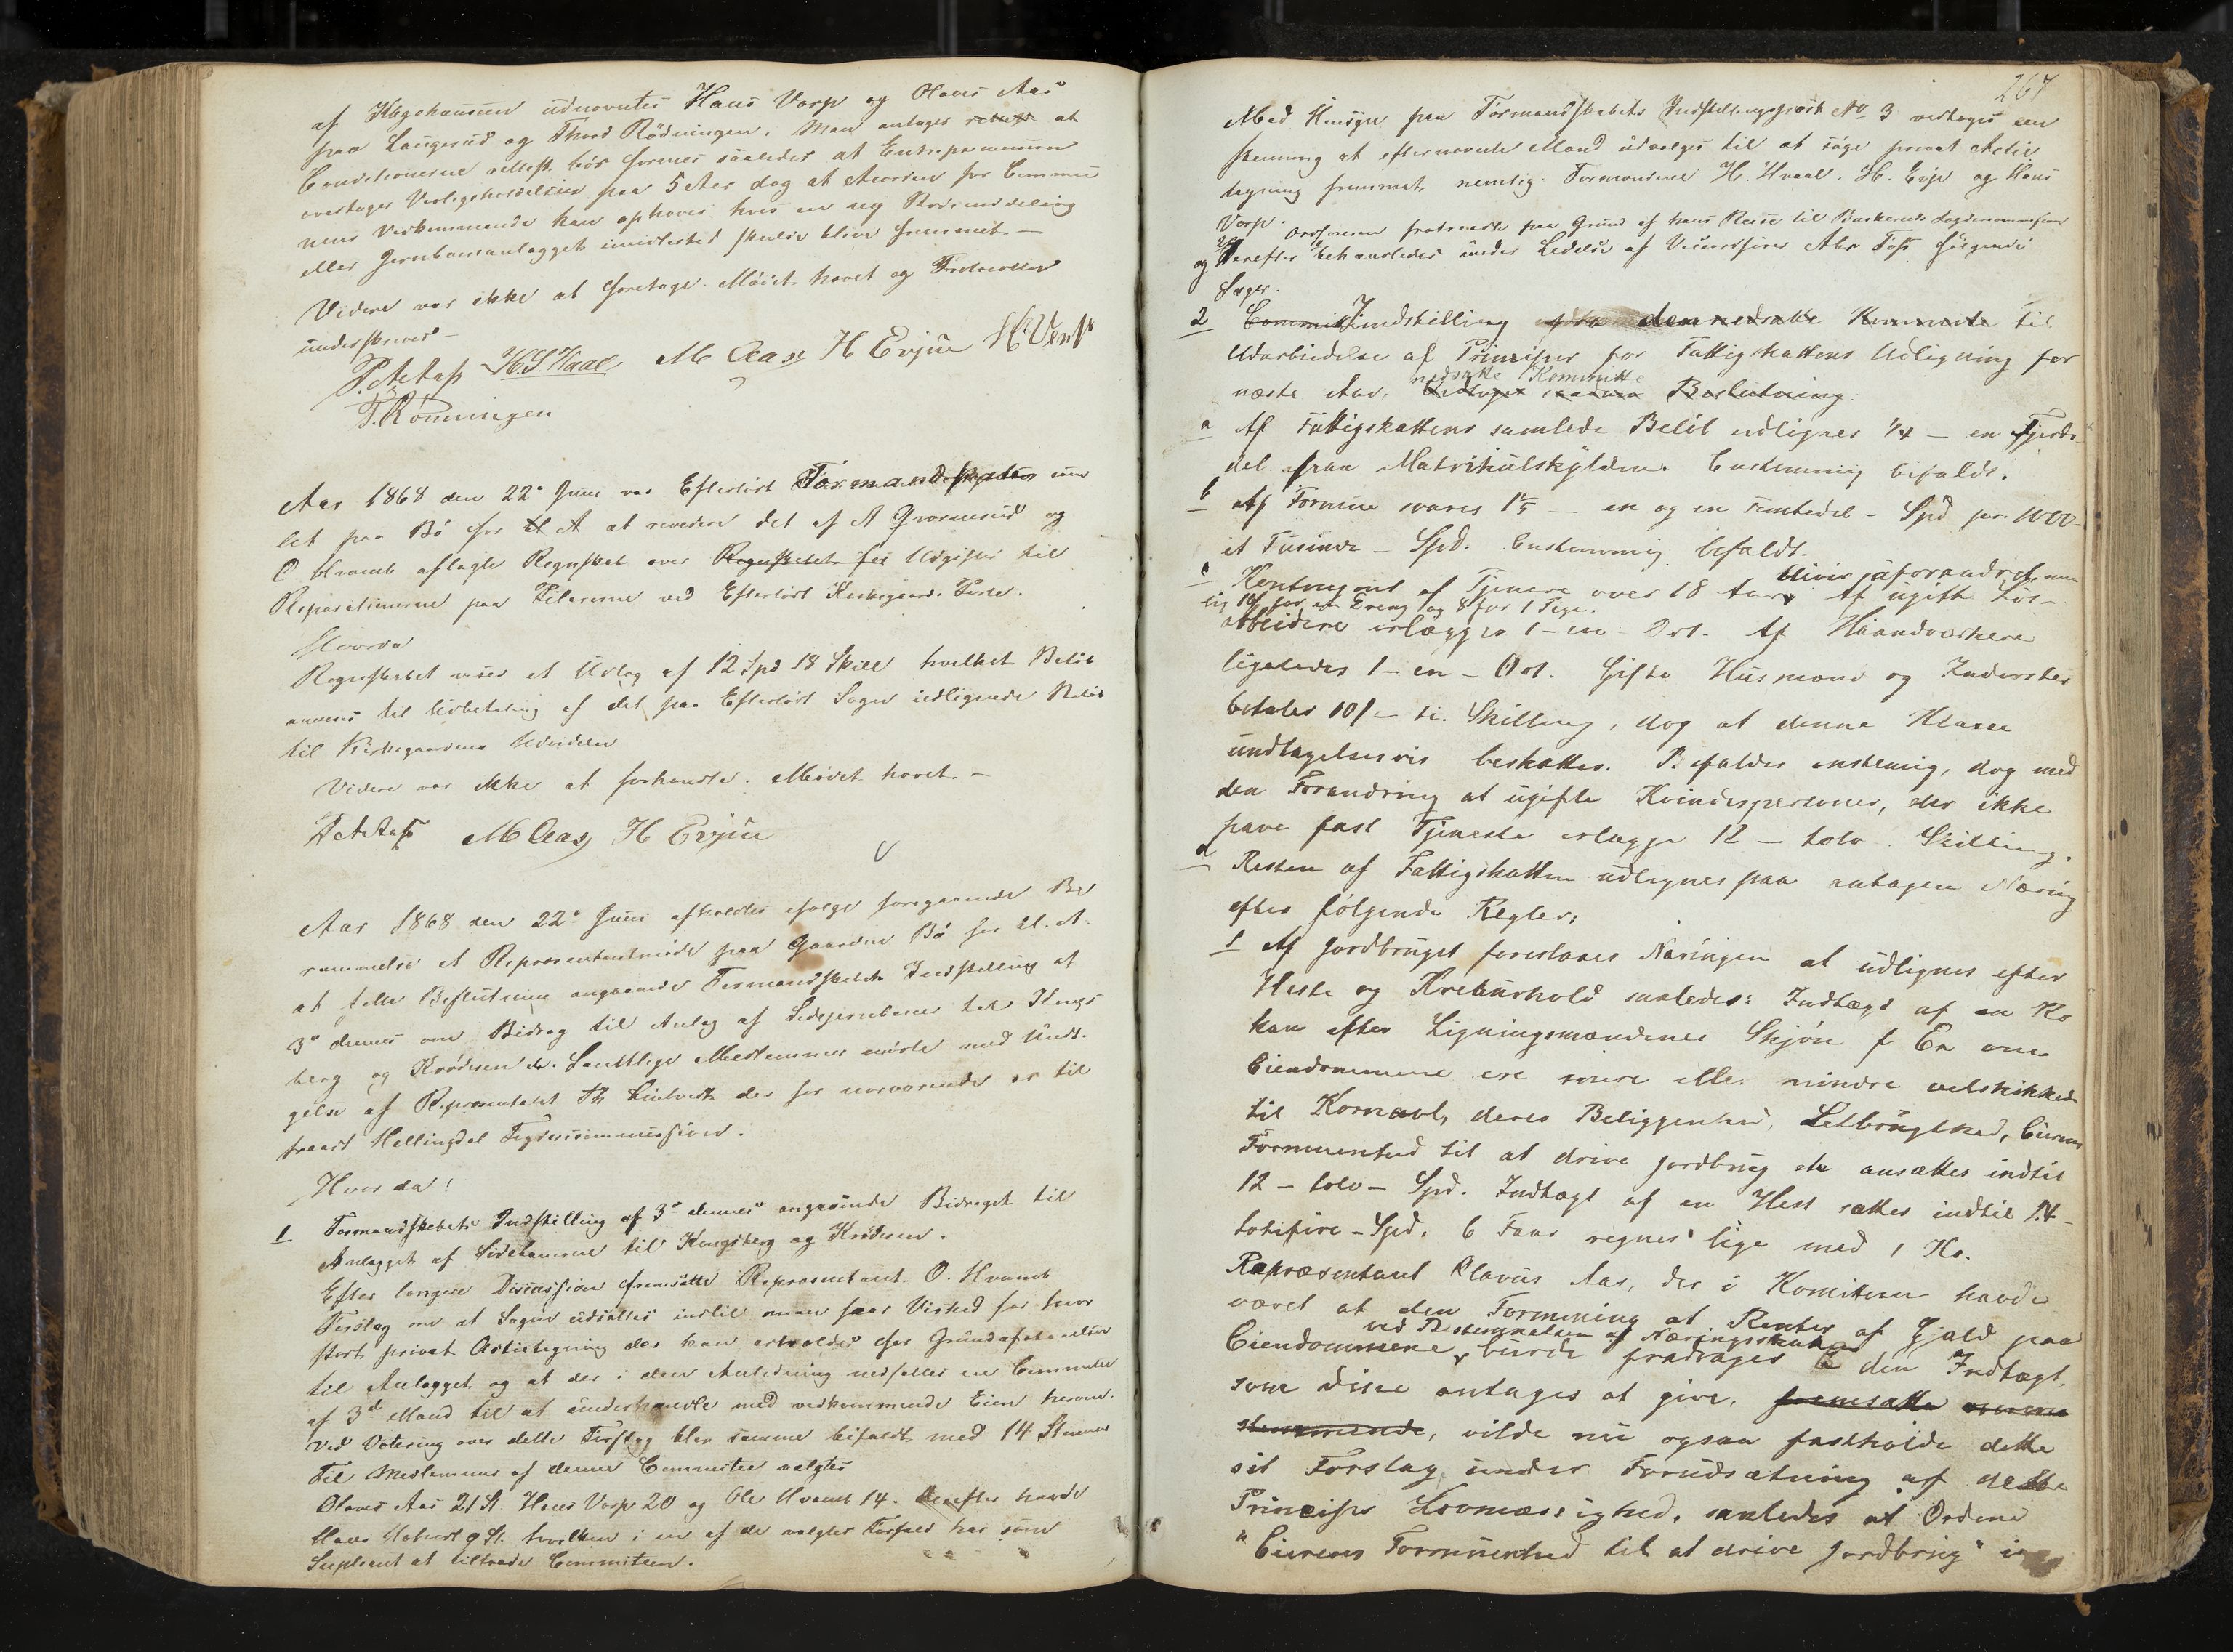 af Kågehaugen udnævntes Hans Vorp og Olaus Aas
paa Laugerud og Thord Rödningen. Man antager at
Conditionerne rettest bör formes saaledes at Entreprenneuren
overtager Vedligeholdelsen paa 5 Aar dog at Accorden for Commu
nens Vedkommende kan ophæves hvis en ny Rodeinddeling
eller Jernbaneanlægget imidlertid skulde blive fremmet –
Videre var ikke at foretage. Mödet hævet og Protocollen
underskrevet –
H. Evju
T. Rönningen
Aar 1868 den 22de Juni var Eftelöts Formandskab sam
let paa Bö for bl A at revidere det af A Grosnerud og
O Hvamb aflagte Regnskab over Regnskabet for Udgifter til
Reparationerne paa Pilarerne ved Eftelöts Kirkegaards Porte.
Hvorda
Regnskabet viser et Udlæg af 12 Spd 18 Skill hvilket Belöb
anvises til Udbetaling af det paa Eftelöts Sogn udlignede Belöb
til Kirkegaardens Udvidelse
Videre var ikke at forhandle. Mödet hævet –
M Aas H Evju
Aar 1868 den 22de Juni afholdtes ifölge foregaaende Be
rammelse et Repræsentantmöde paa Gaarden Bö for bl. A.
at fatte Beslutning angaaende Formandskabets Indstilling af
3de dennes om Bidrag til Anlæg af Sidejernbaner til Kongs
berg og Krödern. Samtlige Medlemmer mödte med Undt.
gelse af Repræsentant Th Lintvedt der for nærværende er til
traadt Hellingdal Tiendecommission.
Hvorda!
1 Formandskabets Indstilling af 3de dennes angaaende Bidraget til
Anlægget af Sidebanerne til Kongsberg og Krödern.
Efter længere Discussion fremsatte Repræsentant O. Hvamb
Forslag om at Sagen udsættes indtil man faar Vished for hvor
stort privat Actietegning der kan erholdes for Grundafstaaelsen
til Anlægget og at der i den Anledning nedsættes en Committe
af 3de Mand til at underhandle med vedkommende Eiere herom.
Ved Votering over dette Forslag blev samme bifaldt med 14 Stemmer
Til Medlemmer af denne Committee valgtes
Olaus Aas 21 St. Hans Vorp 20 og Ole Hvamb 14. Derefter havde
Hans 9 St. hvilken i en af de valgtes Forfald har som
Supleant at tiltræde Committeen.
267
Med Hensyn paa Formandskabets Indstillingspost No 3 vedtages een
stemmig at efternævnte Mand udvælges til at söge privat Actie
tegning fremmet nemlig. Formændene H. Hvaal. H. Evju og Hans
Vorp.
Ordföreren fratraadte paa Grund af hans Reise til Buskeruds Lægdscommission
og Derefter behandledes under Ledelse af Viceordförer Abr Tofs fölgende
Sager.
2 Commit Indstilling fra den nedsatte Kommite til
Udarbeidelse af Principer for Fattigskattens Udligning for
nedsatte Kommitte
næste Aar. Vedtaget saadan Beslutning:
a Af Fattigskattens samlede Belöb udlignes 1/4 – en Fjerde
del paa Matrikulskylden. Enstemmig bifaldt.
b Af Formue svares 1 1/5 – en og en Femtedel – Spd pr. 1000 –
et Tusinde – Spd. Enstemmig bifaldt.
c Kontingent af Tjenere over 18 Aar bliver uforandret nem
lig 16 for en Dreng og 8 for 1 Pige. Af ugifte Lös-
arbeidere erlægges 1 – en – Ort. Af Haandværkere
ligeledes 1 – en – Ort. Gifte Husmænd og Inderster
betaler 10/ – ti. Skilling, dog at denne Klasse
undtagelsesvis beskattes. Bifaldes enstemig, dog med
den Forandring at ugifte Kvindespersoner, der ikke
have fast Tjeneste erlægge 12 – tolv. Skilling.
d Resten af Fattigskatten udlignes paa antagen Næring
efter fölgende Regler:
1 Af Jordbruget foreslaaes Næringen at udlignes efter
Heste og Kreaturhold saaledes: Indtægt af en Ko
kan efter Ligningsmændenes Skjön f Ex om
Eiendommene ere mere eller mindre velskikkede
til Kornavl, deres Beliggenhed, Letbrugthed, Eierens
Formuenhed til at drive Jordbrug etc ansættes indtil
12 – tolv – Spd. Indtægt af en Hest sættes indtil 24 –
totifire – Spd. 6 Faar regnes lige med 1 Ko.
Repræsentant Olavus Aas, der i Komiteen havde
været af den Formening at Renter af Gjæld paa
ved Bestemmelsen af Næringsskatten
Eiendommene burde fradrages den Indtægt,
som disse antages at give, fremsatte overens
stemmende, vilde nu ogsaa fastholde dette
sit Forslag under Forudsætning af dette
Principes Lovmæssighed, saaledes at Ordene
"Eierens Formuenhed til at drive Jordbrug"